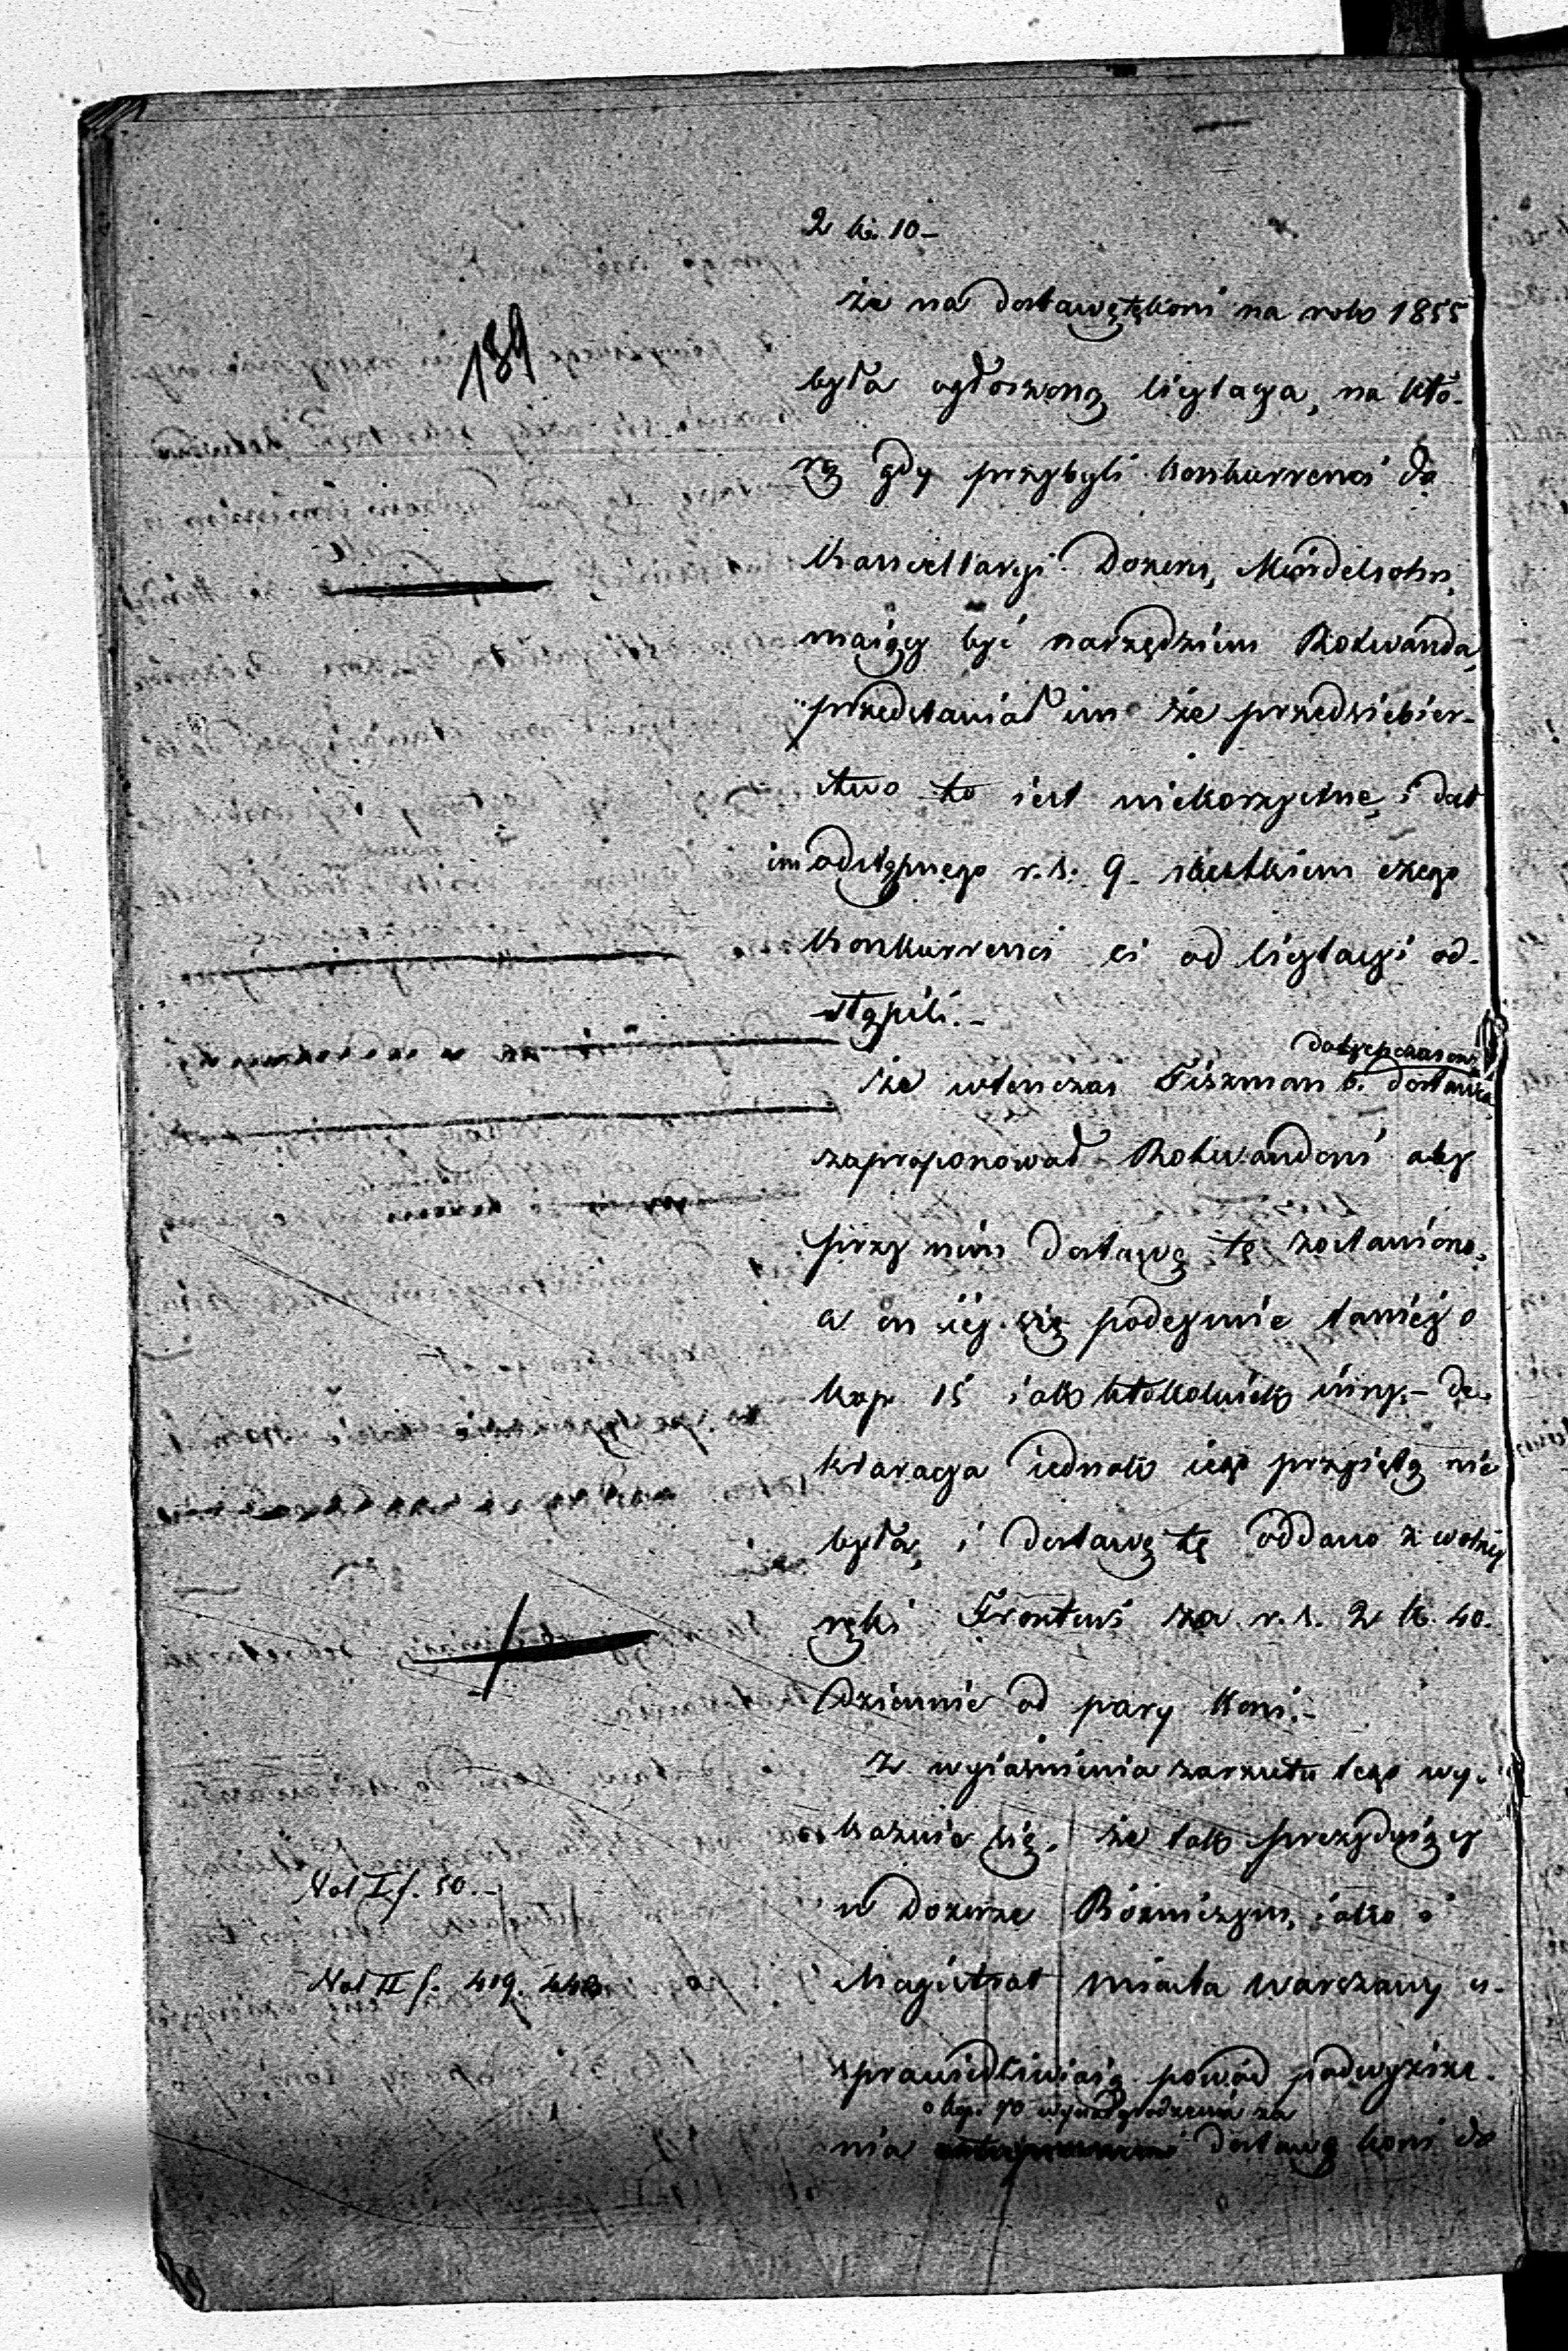 2 k. 10 –
189
że na dostawę tę koni na rok 1855
była ogłoszoną licytacya, na któ-
rą gdy przybyli konkurrenci do
Kancellaryi Dozoru, Mendelsohn,
maiący być narzędziem Rotwanda,
przedstawiał im że przedsiebier-
stwo to iest niekorzystne, i dał
im odstępnego r. s. 9. skutkiem czego
konkurrenci ci od licytacyi od-
stąpili. –
dotychczasowy
że wtenczas Fiszman b. dostawca
zaproponował Rotwandowi aby
przy nim dostawę tę zostawiono,
a on iéj się podeymie taniéj o
kop. 15 iak ktokolwiek inny. – De-
klaracya iednak iego przyiętą nie
była, i dostawę tę oddano z wolnéj
ręki Frontowi za r. s. 2 k. 40.
dziennie od pary koni. –
Z wyiaśnienia zarzutu tego wy-
kazuie się, że tak prezyduiący
Vol I f. 50. –
w Dozorze Bóżniczym, iako i
Vol II f. 419. 443
Magistrat miasta Warszawy u-
sprawiedliwiaią powód podwyższe-
o kop. 70 wynagrodzenia za
nia dostawę koni do